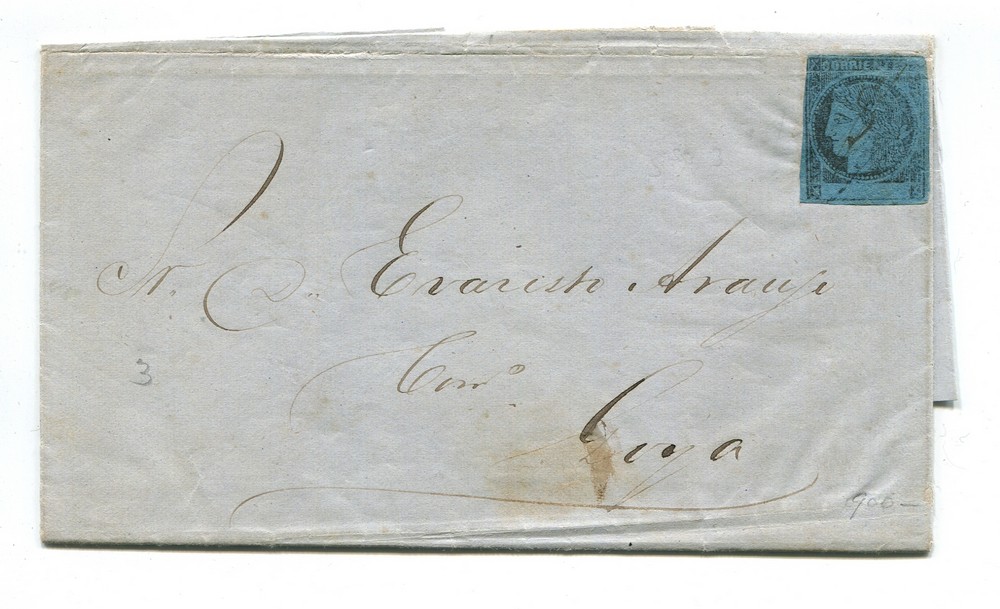 CORRIENTES
Sr. D.n Evaristo Araujo
Com.o
Goya
3
900-